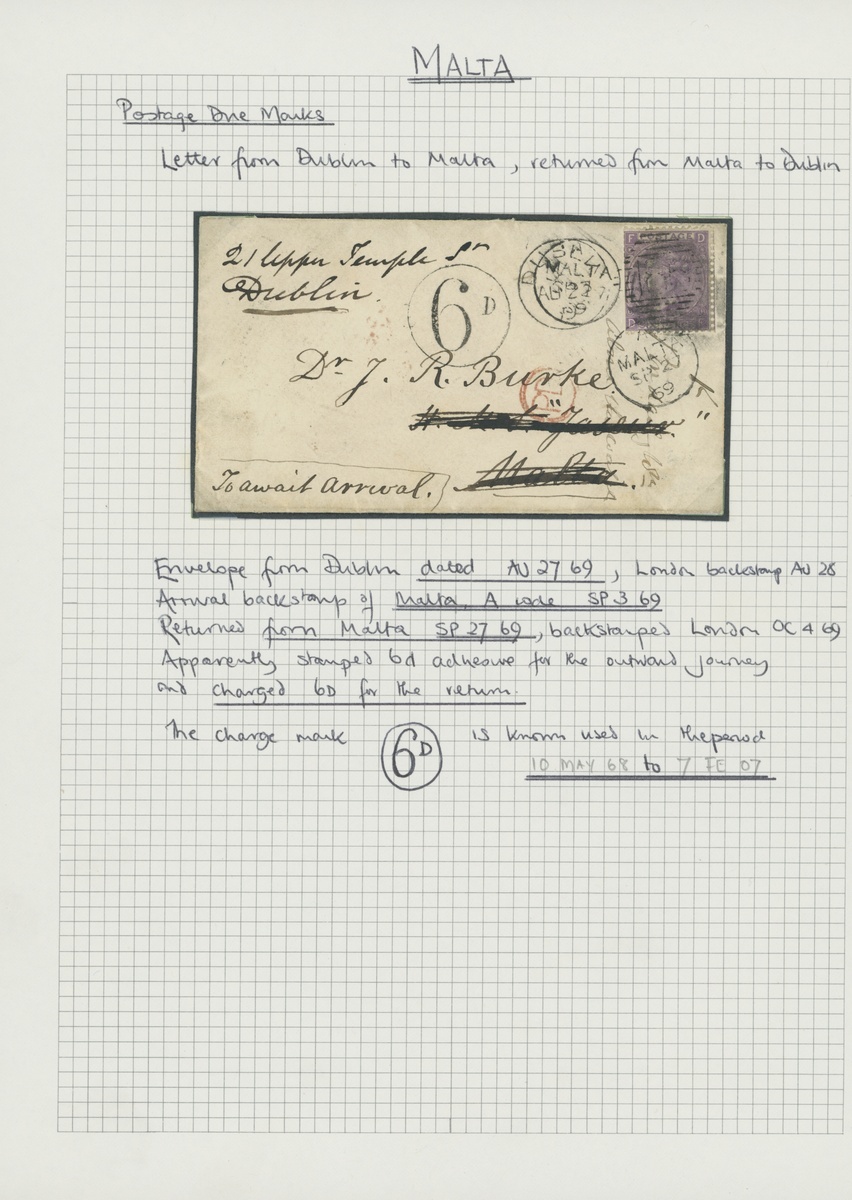 MALTA
Postage Due Marks
Letter from Dublin to Malta, returned from Malta to Dublin
21 Upper Temple St
Dublin.
6D
MALTA
69
F POSTAGE D
MALTA
SP
69
Dr J. R. Burke
Malta.
To await arrival.
Envelope from Dublin dated AU 27 69, London backstamp AU 28
Arrival backstamp of Malta, A code SP 3 69
Returned from Malta SP 27 69, backstamped London OC 4 69
Apparently stamped 6d adhesive for the outward journey
and charged 6D for the return.
The charge mark 6D is known used in the period
10 MAY 68 to 7 FE 07